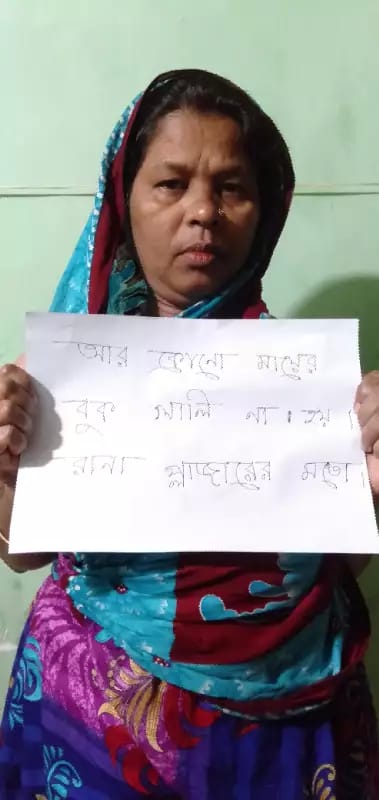 আর কোনো মায়ের
বুক খালি না হয়।
রানা প্লাজারের মতো।